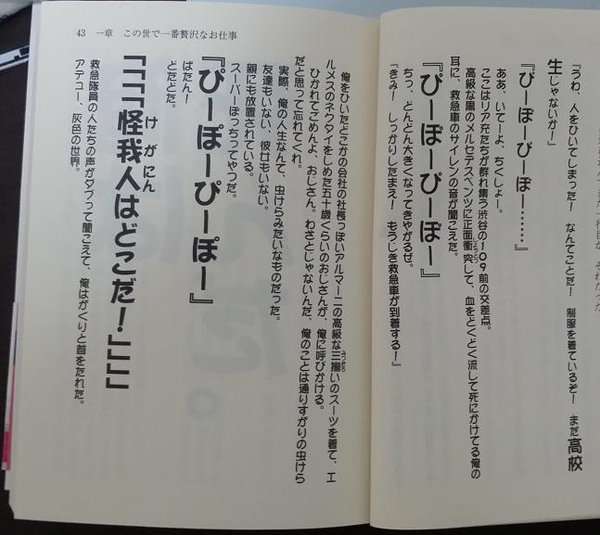 『うわ、人をひいてしまった! なんてことだ! 制服を着ているぞ! まだ高校
生じゃないか!』
『ぴーぽーぴーぽー……』
ああ、いてーよ、ちくしょー。
ここはリア充たちが群れ集う渋谷の109前の交差点。
高級な黒のメルセデスベンツに正面衝突して、血をどくどく流して死にかけてる俺の
耳に、救急車のサイレンの音が聞こえた。
『ぴーぽーぴーぽー』
ちっ、どんどん大きくなってきやがるぜ。
『きみ! しっかりしたまえ! もうじき救急車が到着する!』
43 一章 この世で一番贅沢なお仕事
俺をひいたどこかの会社の社長っぽいアルマーニの高級な三揃いのスーツを着て、エ
ルメスのネクタイをしめた五十歳くらいのおじさんが、俺に呼びかける。
ひかれてごめんよ、おじさん。わざとじゃないんだ、俺のことは通りすがりの虫けら
だと思って忘れてくれ。
実際、俺の人生なんて、虫けらみたいなものだったな。
友達もいない、彼女もいない。
親にも放置されている。
スーパーぼっちってやつだ。
『ぴーぽーぴーぽー』
ばたん!
どたどた。
「「「「怪我人はどこだ!」」」」
けがにん
救急隊員の人たちの声がダブって聞こえて、俺はがくりと首をたれた。
アデュー、灰色の世界。